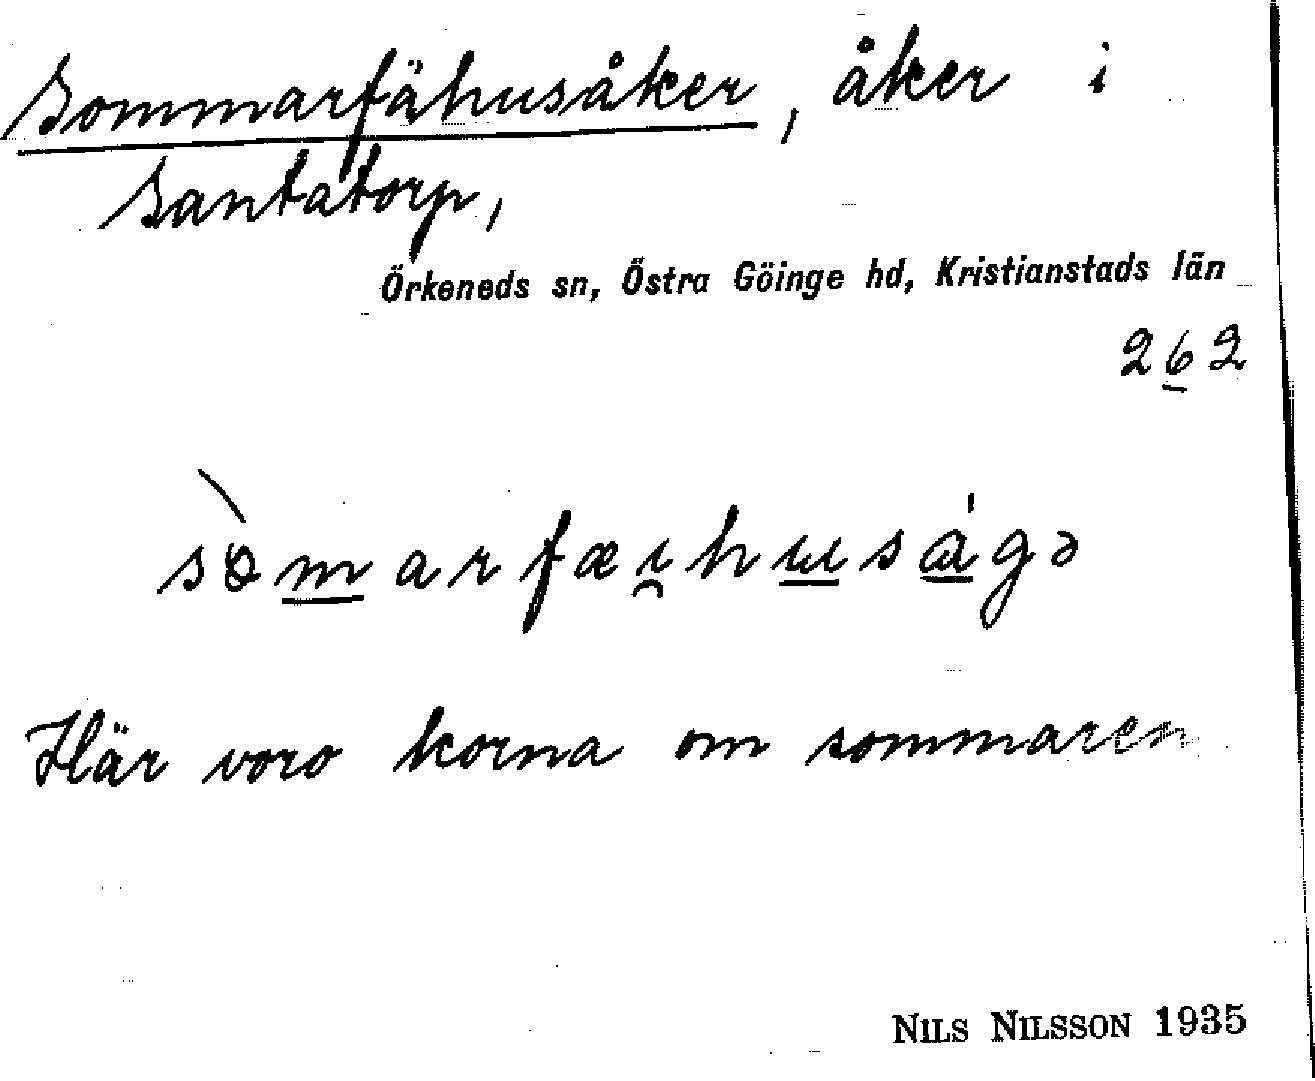 Sommarfähusåker, åker i
Santatorp,
Örkeneds sn, Östra Göinge hd, Kristianstads län
262
Här voro korna om sommaren
NILS NILSSON 1935